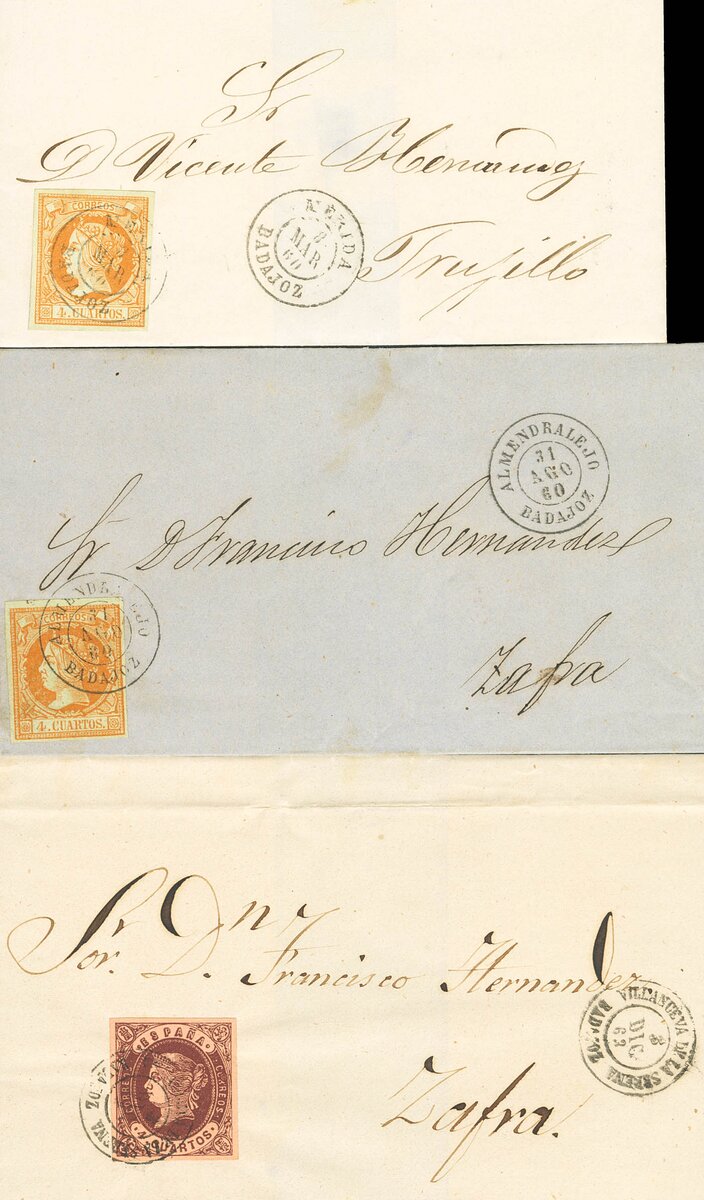 Sr
D Vicente Hernandez
Trujillo
MERIDA
8
MAR
60
BADAJOZ
CORREOS
MAR
60
4. CUARTOS.
ALMENDRALEJO
31
AGO
60
BADAJOZ
Sr D Francisco Hernandez
Zafra
ALMENDRALEJO
31
AGO
60
BADAJOZ
CORREOS
4. CUARTOS.
Sor. Dn. Francisco Hernandez
Zafra.
VILLANUEVA DE LA SERENA
3
DIC
62
BADAJOZ
ESPAÑA
CORREOS
4 CUARTOS